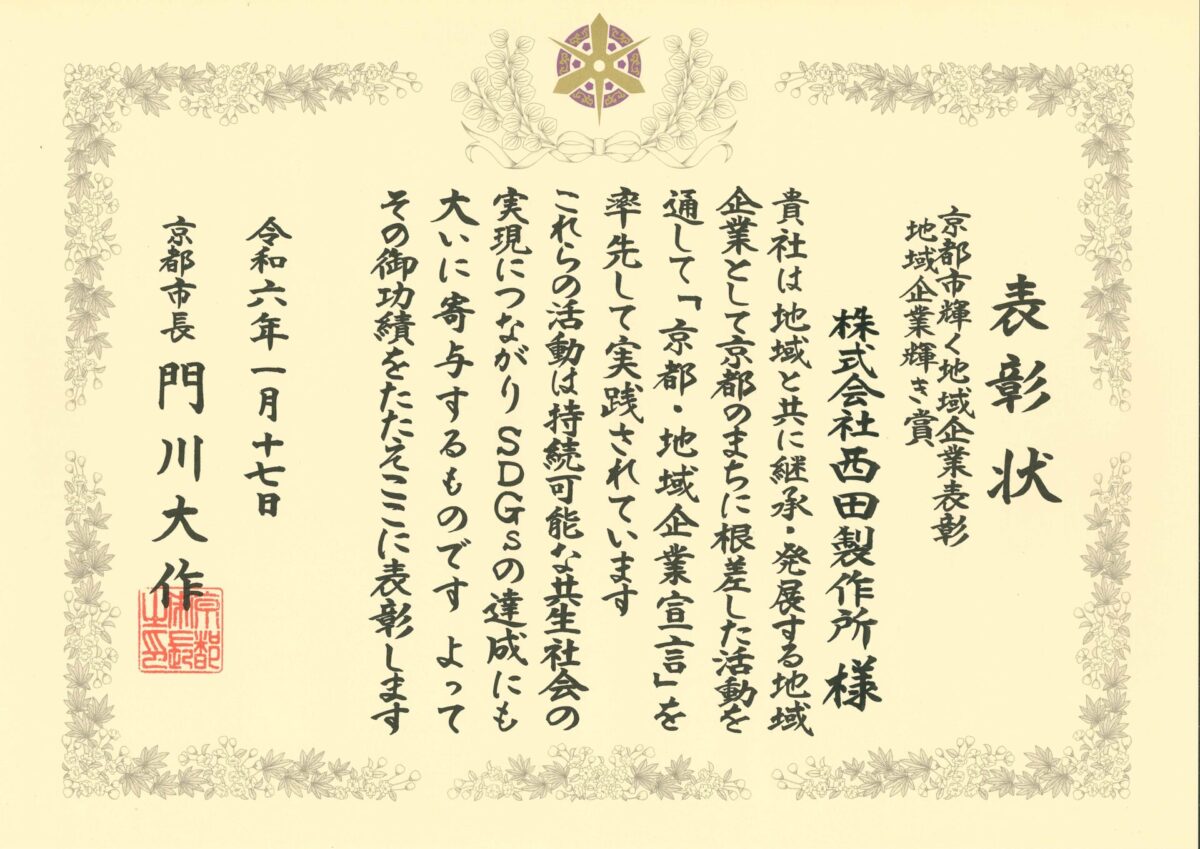 表彰状
京都市輝く地域企業表彰
地域企業輝き賞
株式会社西田製作所 様
貴社は地域と共に継承・発展する地域
企業として京都のまちに根差した活動を
通して「京都・地域企業宣言」を
率先して実践されています
これらの活動は持続可能な共生社会の
実現につながりSDGsの達成にも
大いに寄与するものです よって
その御功績をたたえここに表彰します
令和六年一月十七日
京都市長 門川大作
京都
市長
之印